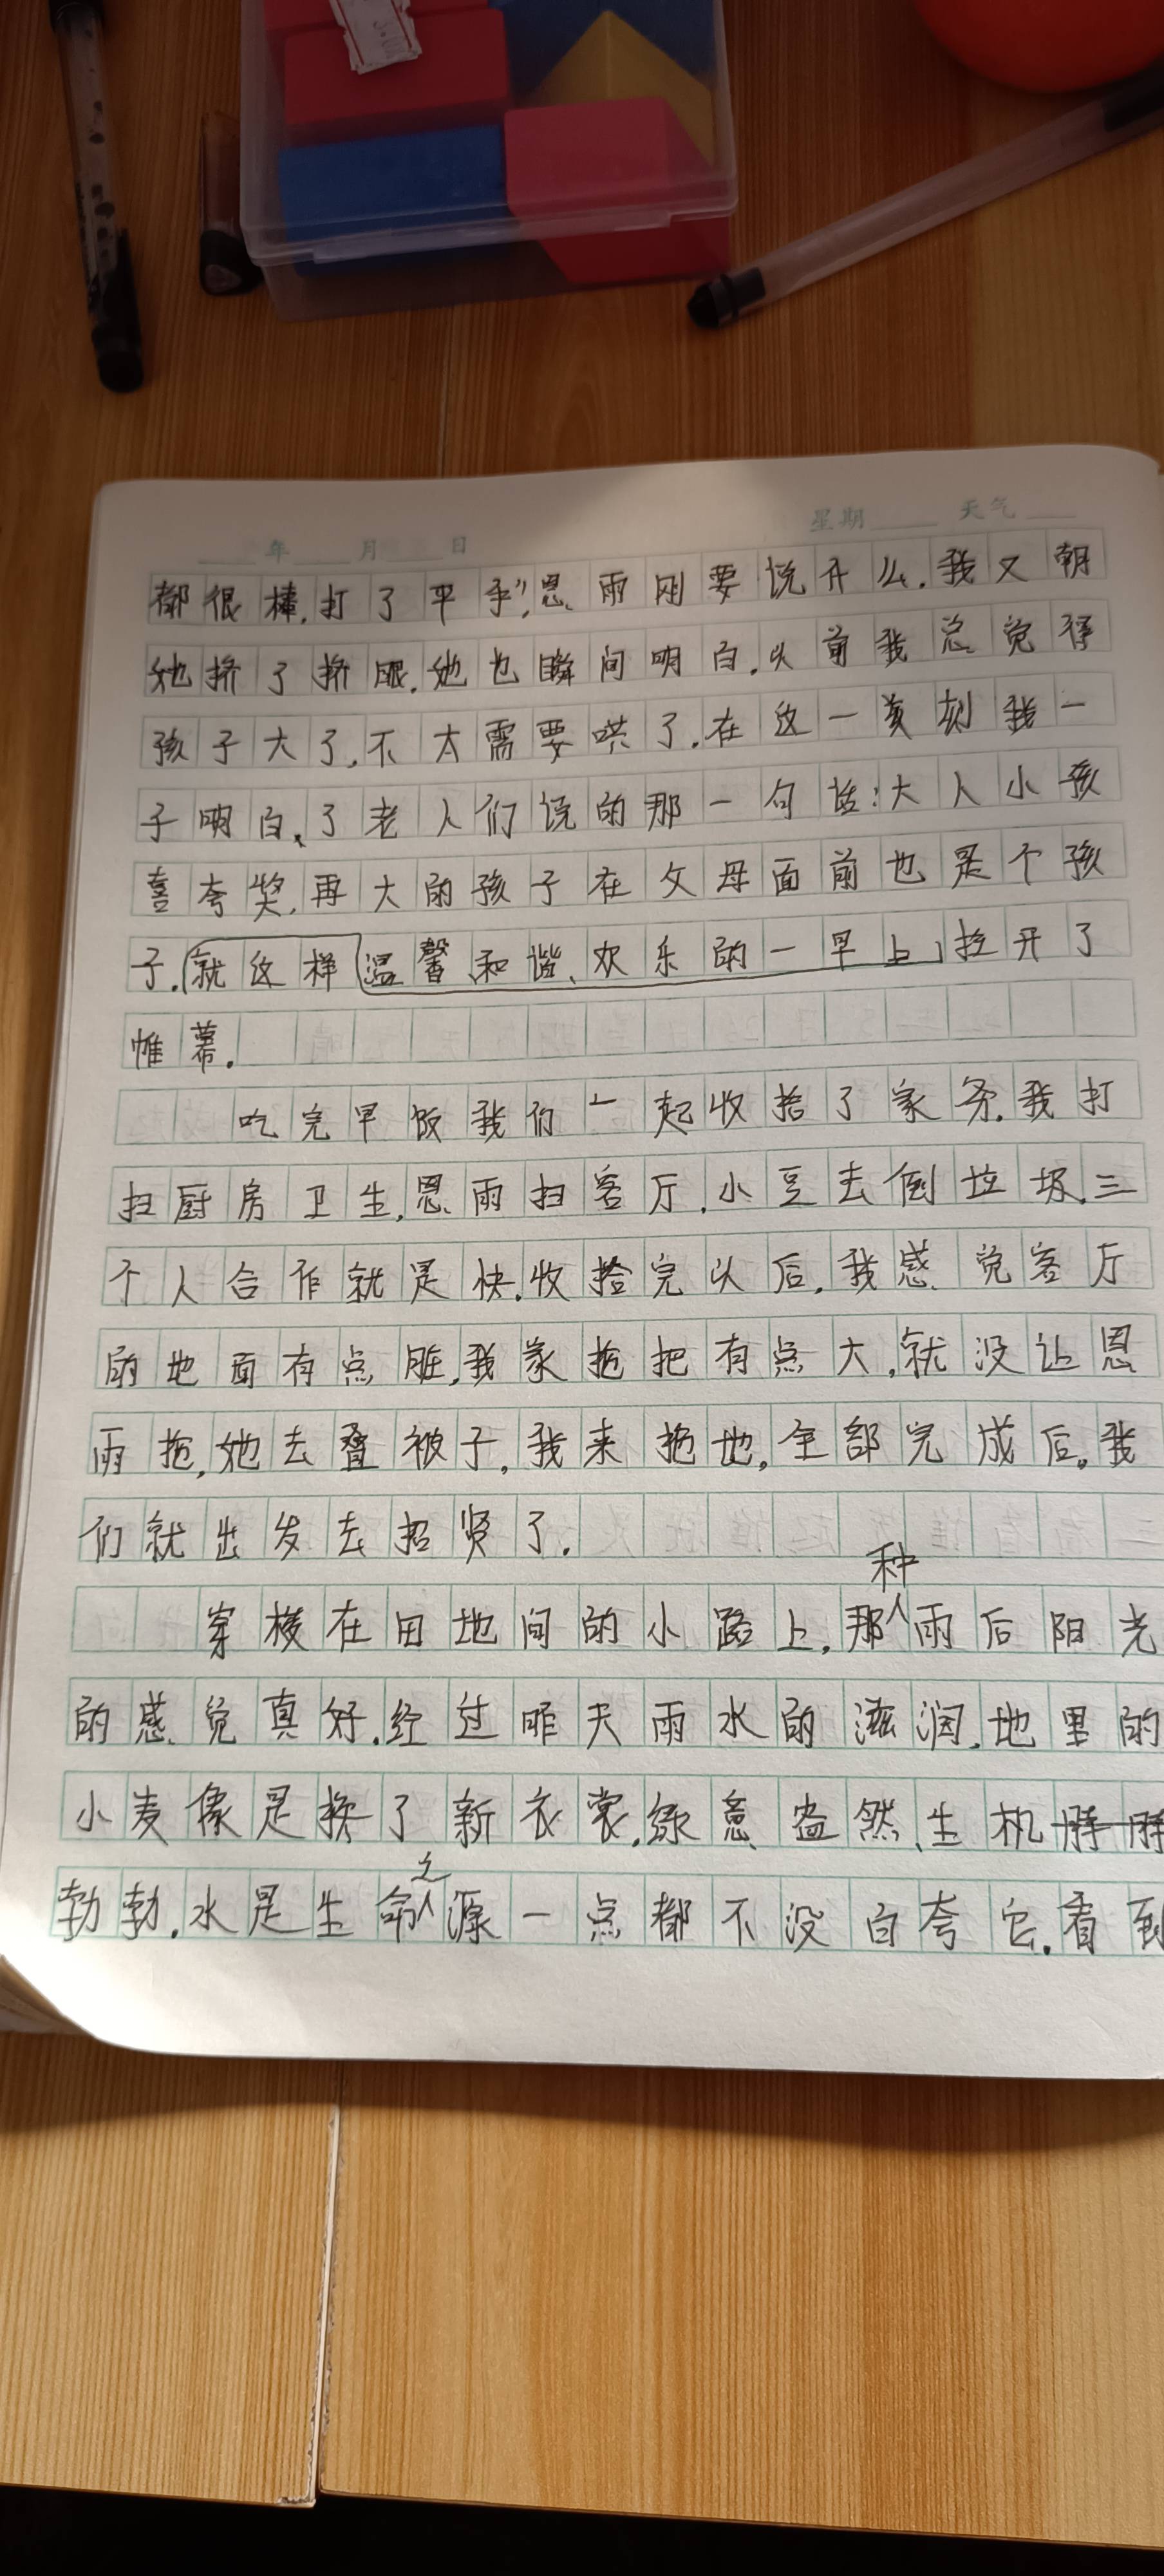 年 月 日 星期 天气
都很棒,打了平手",恩雨刚要说什么,我又朝
她挤了挤眼,她也瞬间明白,以前我总觉得
孩子大了,不太需要哄了,在这一刻我一
子明白、了老人们说的那一句话:大人小孩
喜夸奖,再大的孩子在父母面前也是个孩
子.就这样温馨、和谐、欢乐的一早上拉开了
帷幕.
吃完早饭我们一起收拾了家务.我打
扫厨房卫生,恩雨扫客厅,小豆去倒垃圾,三
个人合作就是快.收拾完以后,我感觉客厅
的地面有点脏,我家拖把有点大,就没让恩
雨拖,她去叠被子,我来拖地,全部完成后,我
们就出发去招贤了.
穿梭在田地间的小路上,那种雨后阳光
的感觉真好.经过昨天雨水的滋润,地里的
小麦像是换了新衣裳,绿意盎然、生机
勃勃.水是生命之源一点都不没白夸它.看到